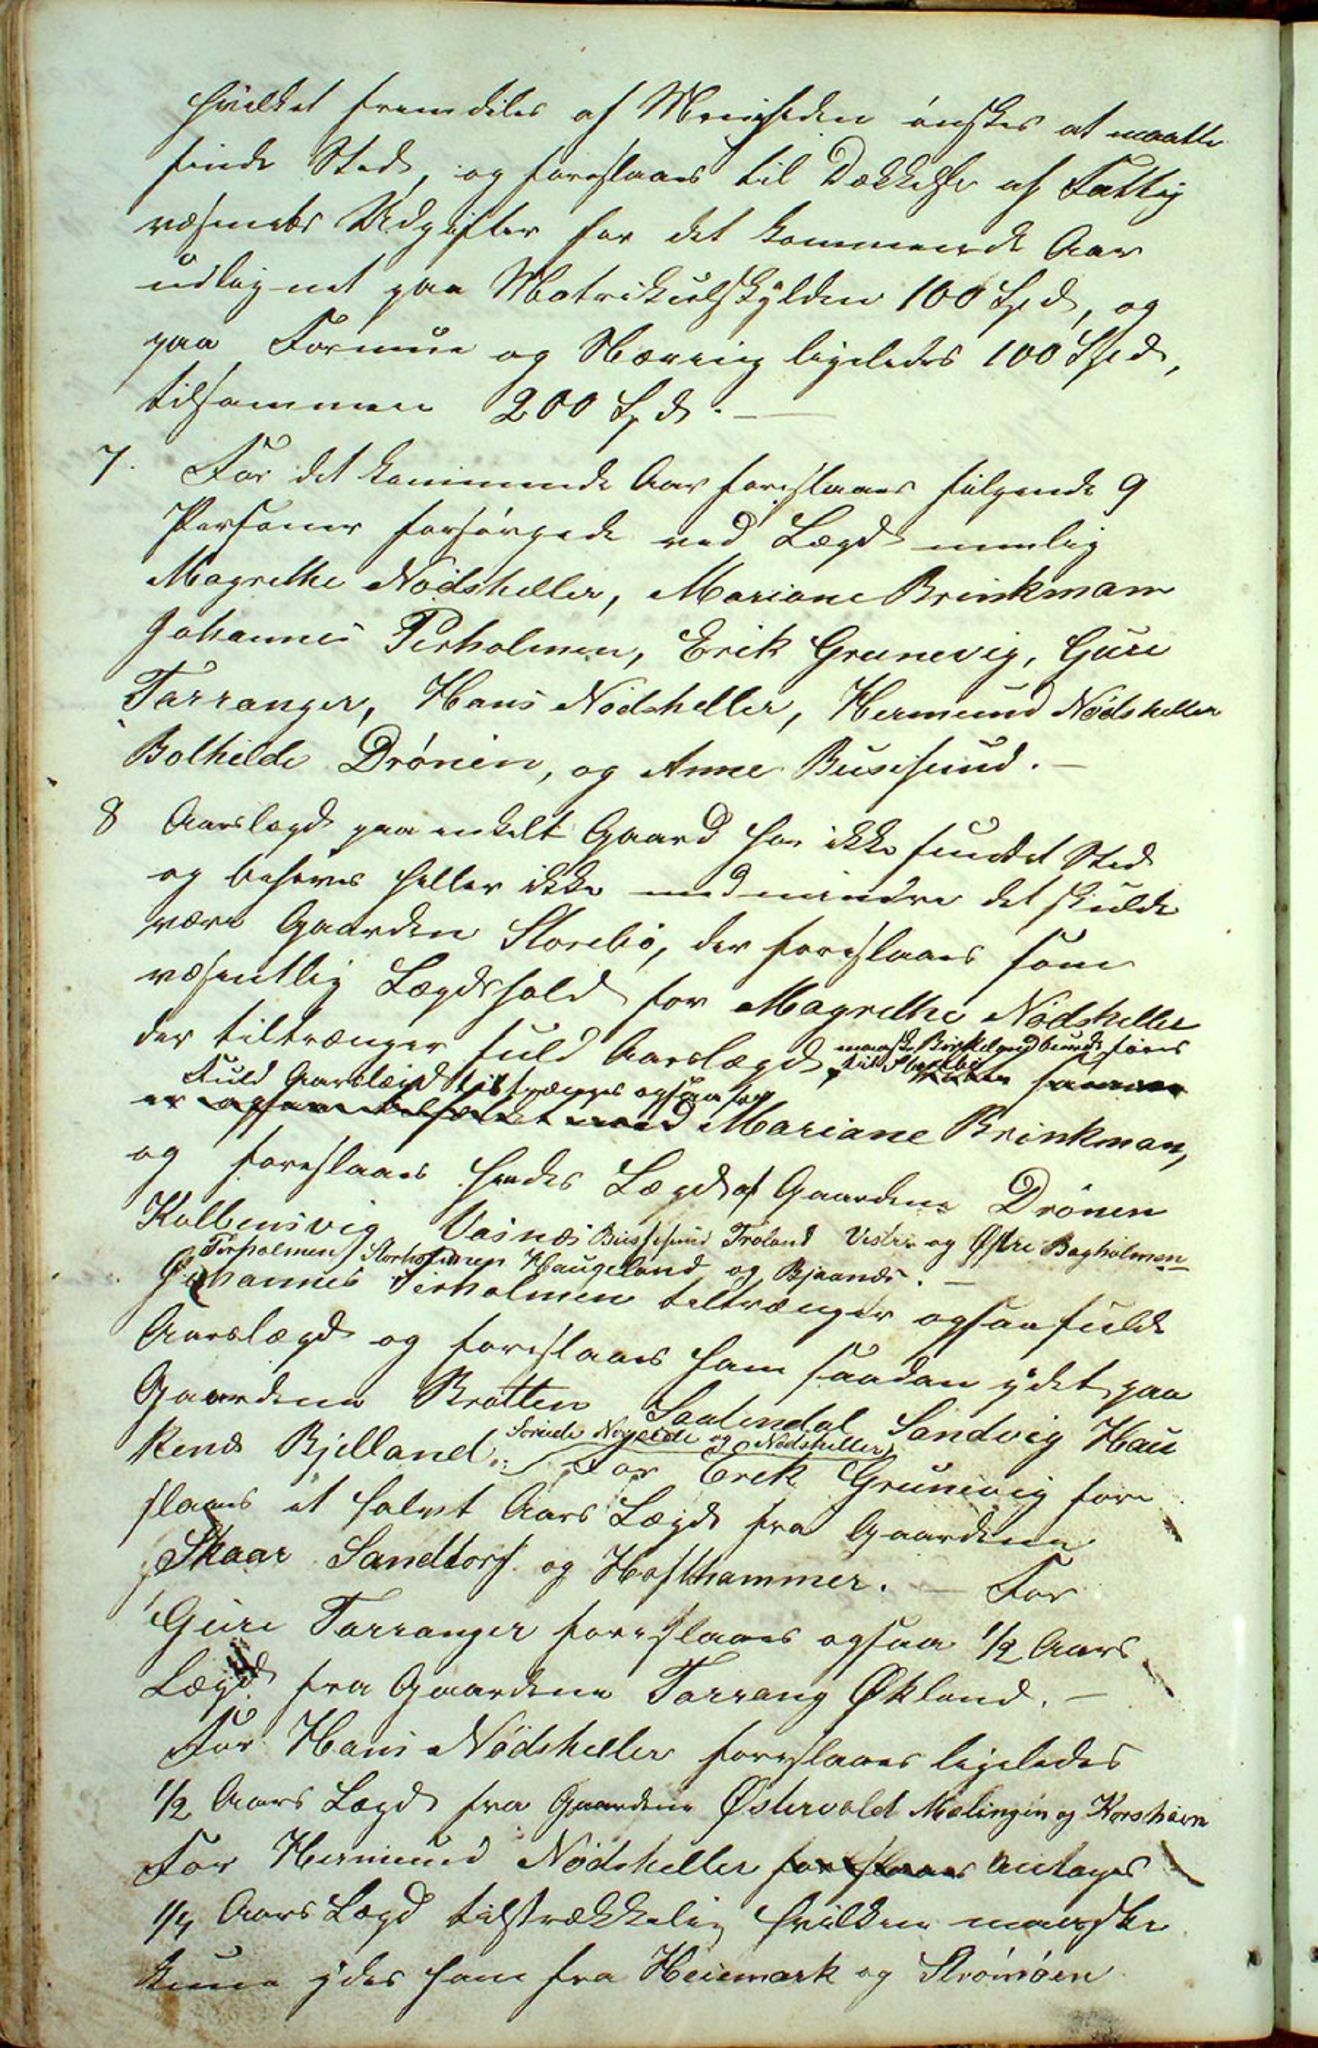 hvilket fremdeles af Menigheden ønskes at maatte
finde Sted, og foreslaaes til Dækkelse af Fattig
væsenets Udgifter for det kommende Aar
udlignet paa Matrikulskylden 100 Spd, og
paa Formue og Næring ligeledes 100 Spd,
tilsammen 200 Spd. —
7. For det kommende Aar foreslaaes følgende 9
Personer forsørgede ved Lægd nemlig
Magrethe Nödsheller, Mariane Brinkmam
Johannes Perholmen, Erik Grunevig, Guri
Tarranger, Hans Nödsheller, Hermund Nödsheller
Bolhilde Drönen, og Anne Busesund. —
8 Aarslægd paa enkelt Gaard har ikke fundet Sted
og behøves heller ikke medmindre det skulde
være Gaarden Storebö, der foreslaaes som
væsentlig Lægdshold for Magrethe Nödsheller
der tiltrænger fuld Aarslægd maaske Birkeland kunde føies
til Storebö
Fuld Aarslægd tiltrænges ogsaa for
Mariane Brinkman,
og foreslaaes hendes Lægd af Gaardene Drönen
Kolbensvig Vasnæs Bussesund Troland Vestre og Østre Bagholmen
Perholmen Storholmen Haugeland og Bjaanæs. —
Johannes Perholmen tiltrænger ogsaa fuld
Aarslægd og foreslaaes ham saadan ydet paa
Gaardene Bratten Saalendal Sandvig Hau
kenæs Bjelland. Sörude Nordre og Nödsheller
For Erik Grunevig fore
slaaes et halvt Aars Lægd fra Gaardene
Skaar Sandtorf og Hofshammer. — For
Guri Tarranger foreslaaes ogsaa 1/2 Aars
Lægd fra Gaardene Tarrang Økland. —
For Hans Nödsheller foreslaaes ligeledes
1/2 Aars Lægd fra Gaardene Østervold Mælingen og Korshavn
For Hermund Nödsheller foreslaaes antages
1/4 Aars Lægd tilstrækkelig hvilken maaske
kunne ydes ham fra Heiemark og Strömöen